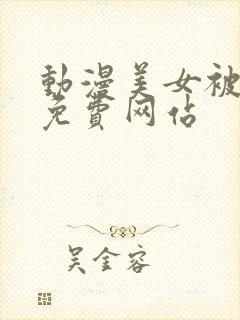 動漫美女被
免費网佔
吴金容